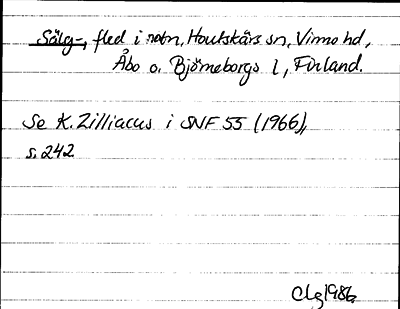 Sälg-, fled i notn, Houtskärs sn, Virmo hd,
Åbo o. Björneborgs l, Finland.
Se K. Zilliacus i SNF 55 (1966),
s. 242.
Clg 1986.